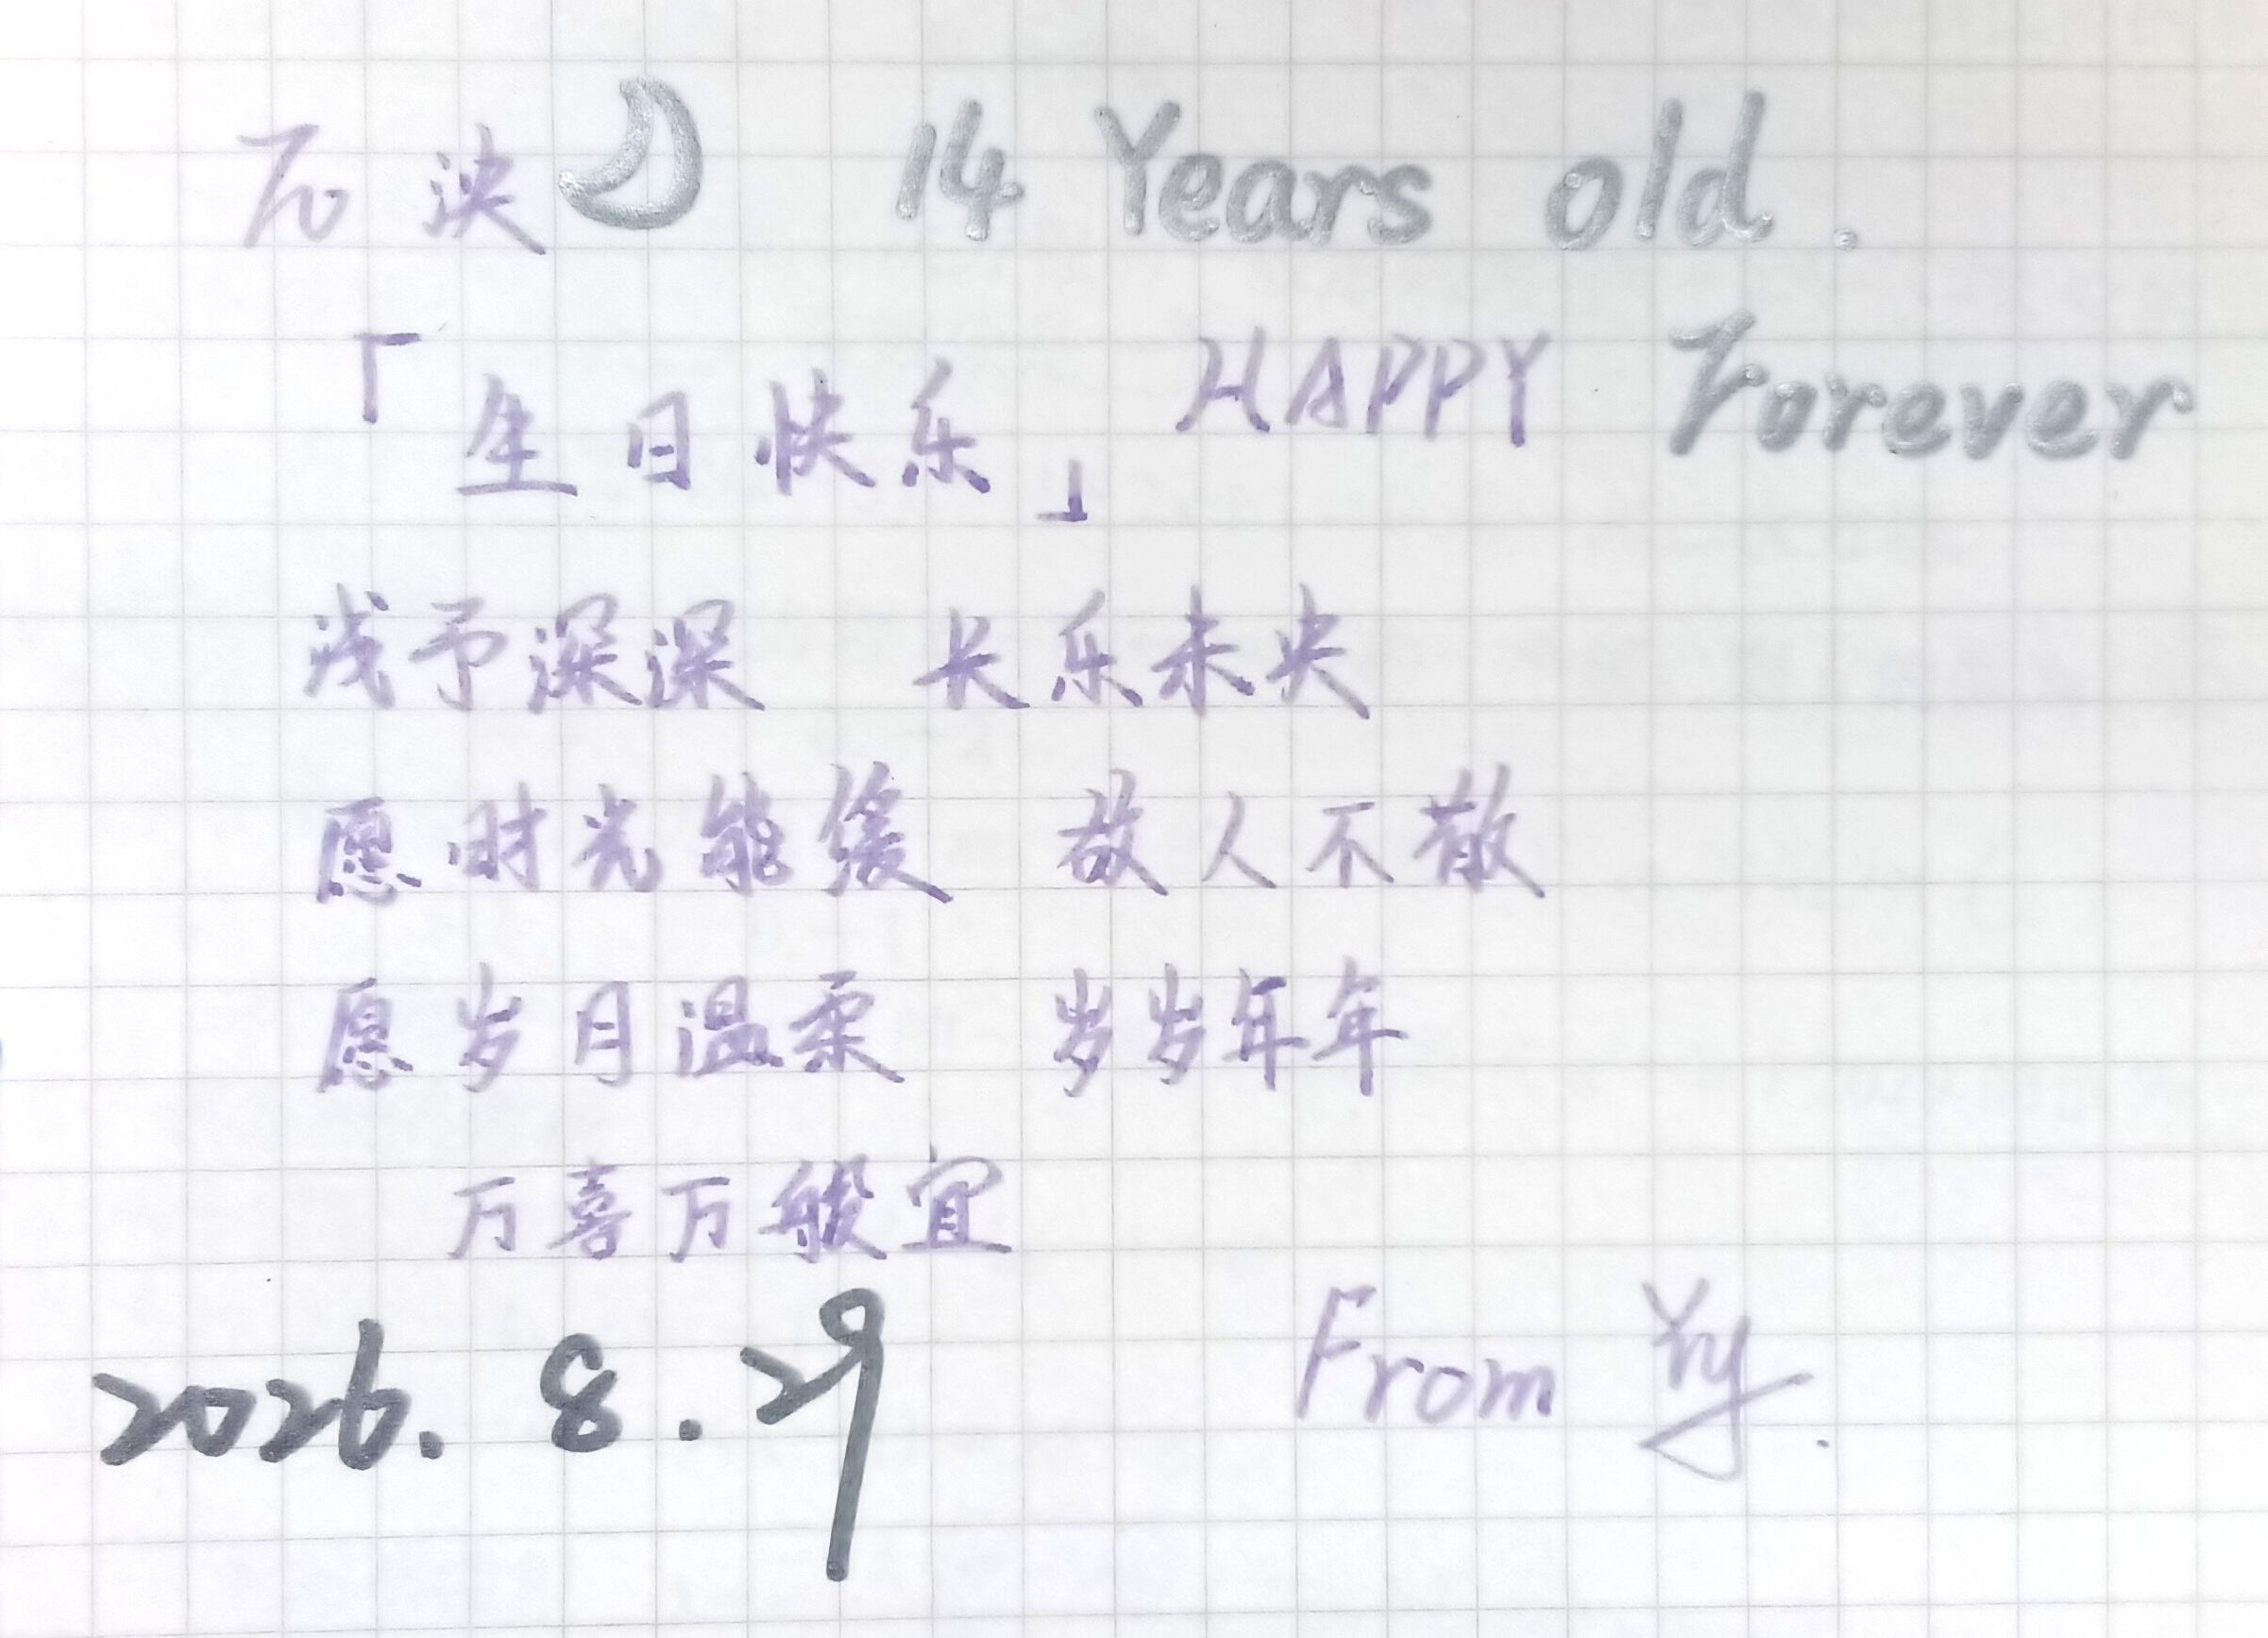 泱 14 Years old.
「生日快乐」 HAPPY Forever
浅予深深 长乐未央
愿时光能缓 故人不散
愿岁月温柔 岁岁年年
万喜万般宜
2026.8.29 From Yy.